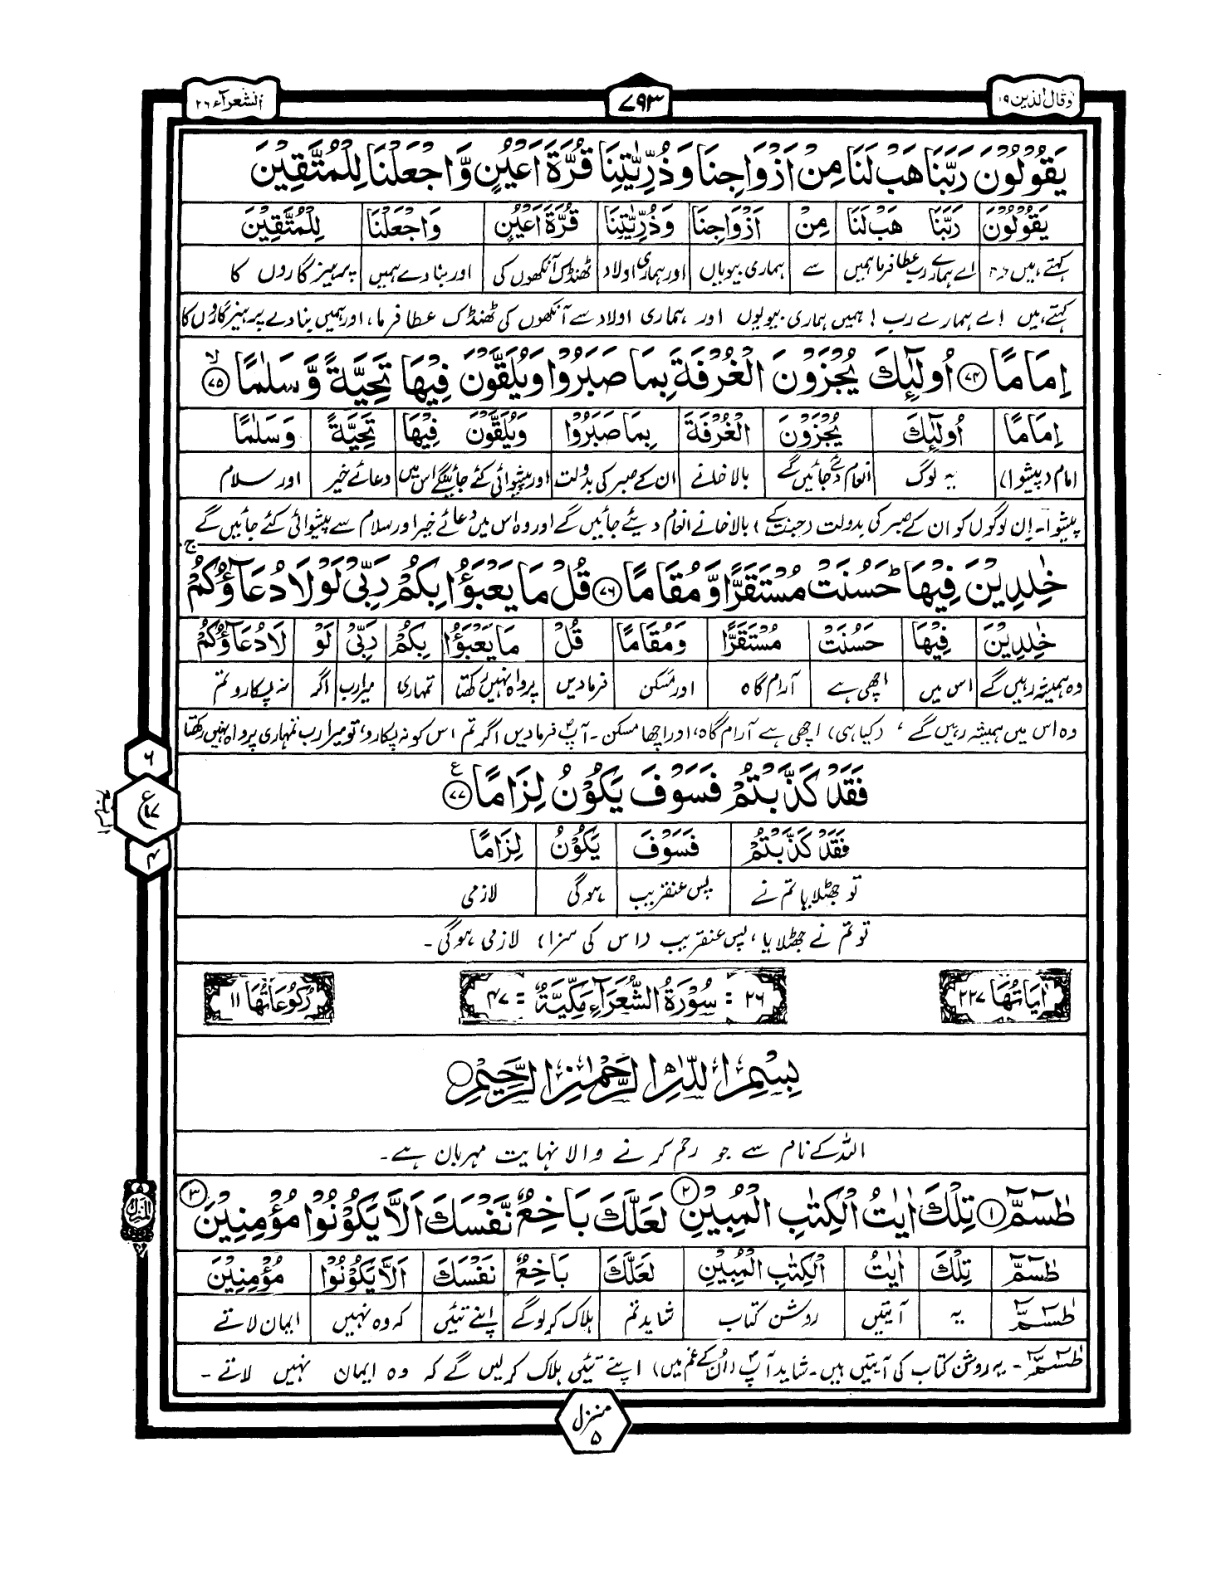 وقال الذين ۱۹
۷۹۳
الشعرآء ۲۶
يَقُوْلُوْنَ رَبَّنَا هَبْ لَنَا مِنْ اَزْوَاجِنَا وَذُرِّيّٰتِنَا قُرَّةَ اَعْيُنٍ وَّاجْعَلْنَا لِلْمُتَّقِيْنَ
يَقُوْلُوْنَ رَبَّنَا هَبْ لَنَا مِنْ اَزْوَاجِنَا وَذُرِّيّٰتِنَا قُرَّةَ اَعْيُنٍ وَاجْعَلْنَا لِلْمُتَّقِيْنَ
کہتے ہیں وہ اے ہمارے رب عطا فرما ہمیں سے ہماری بیویاں اور ہماری اولاد ٹھنڈک آنکھوں کی اور بنا دے ہمیں پرہیزگاروں کا
کہتے ہیں اے ہمارے رب! ہمیں ہماری بیویوں اور ہماری اولاد سے آنکھوں کی ٹھنڈک عطا فرما، اور ہمیں بنا دے پرہیزگاروں کا
اِمَامًا ۷۴ اُولٰٓئِكَ يُجْزَوْنَ الْغُرْفَةَ بِمَا صَبَرُوْا وَيُلَقَّوْنَ فِيْهَا تَحِيَّةً وَّسَلٰمًا ۷۵
اِمَامًا اُولٰٓئِكَ يُجْزَوْنَ الْغُرْفَةَ بِمَا صَبَرُوْا وَيُلَقَّوْنَ فِيْهَا تَحِيَّةً وَسَلٰمًا
امام (پیشوا) یہ لوگ انعام دیے جائیں گے بالاخانے ان کے صبر کی بدولت اور پیشوائی کئے جائینگے اس میں دعائے خیر اور سلام
پیشوا۔ ان لوگوں کو ان کے صبر کی بدولت (جنت کے) بالاخانے انعام دیئے جائیں گے اور وہ اس میں دعائے خیر اور سلام سے پیشوائی کئے جائیں گے
خٰلِدِيْنَ فِيْهَا ؕ حَسُنَتْ مُسْتَقَرًّا وَّمُقَامًا ۷۶ قُلْ مَا يَعْبَؤُا بِكُمْ رَبِّيْ لَوْلَا دُعَآؤُكُمْ ۚ
خٰلِدِيْنَ فِيْهَا حَسُنَتْ مُسْتَقَرًّا وَمُقَامًا قُلْ مَا يَعْبَؤُا بِكُمْ رَبِّيْ لَوْ لَادُعَآؤُكُمْ
وہ ہمیشہ رہیں گے اس میں اچھی ہے آرام گاہ اور مسکن فرما دیں پرواہ نہیں رکھتا تمہاری میرا رب اگر نہ پکارو تم
وہ اس میں ہمیشہ رہیں گے، (کیا ہی) اچھی ہے آرام گاہ، اور اچھا مسکن۔ آپؐ فرما دیں اگر تم اس کو نہ پکارو، تو میرا رب تمہاری پرواہ نہیں رکھتا
فَقَدْ كَذَّبْتُمْ فَسَوْفَ يَكُوْنُ لِزَامًا ۷۷ ع
فَقَدْ كَذَّبْتُمْ فَسَوْفَ يَكُوْنُ لِزَامًا
تو جھٹلایا تم نے پس عنقریب ہوگی لازمی
تو تم نے جھٹلایا، پس عنقریب (اس کی سزا) لازمی ہوگی۔
۶
ع ۱۷
۴
اٰيَاتُهَا ۲۲۷
۲۶ : سُوْرَةُ الشُّعَرَآءِ مَكِّيَّةٌ : ۴۷
رُكُوْعَاتُهَا ۱۱
بِسْمِ اللّٰهِ الرَّحْمٰنِ الرَّحِيْمِ
اللہ کے نام سے جو رحم کرنے والا نہایت مہربان ہے۔
طٰسٓمّٓ ۱ تِلْكَ اٰيٰتُ الْكِتٰبِ الْمُبِيْنِ ۲ لَعَلَّكَ بَاخِعٌ نَّفْسَكَ اَلَّا يَكُوْنُوْا مُؤْمِنِيْنَ ۳
طٰسٓمّٓ تِلْكَ اٰيٰتُ الْكِتٰبِ الْمُبِيْنِ لَعَلَّكَ بَاخِعٌ نَفْسَكَ اَلَّا يَكُوْنُوْا مُؤْمِنِيْنَ
طٰسٓمّٓ یہ آیتیں روشن کتاب شاید تم ہلاک کر لو گے اپنے تئیں کہ وہ نہیں ایمان لاتے
طٰسٓمّٓ۔ یہ روشن کتاب کی آیتیں ہیں۔ شاید آپؐ (اُن کے غم میں) اپنے تئیں ہلاک کر لیں گے کہ وہ ایمان نہیں لاتے۔
منزل
۵